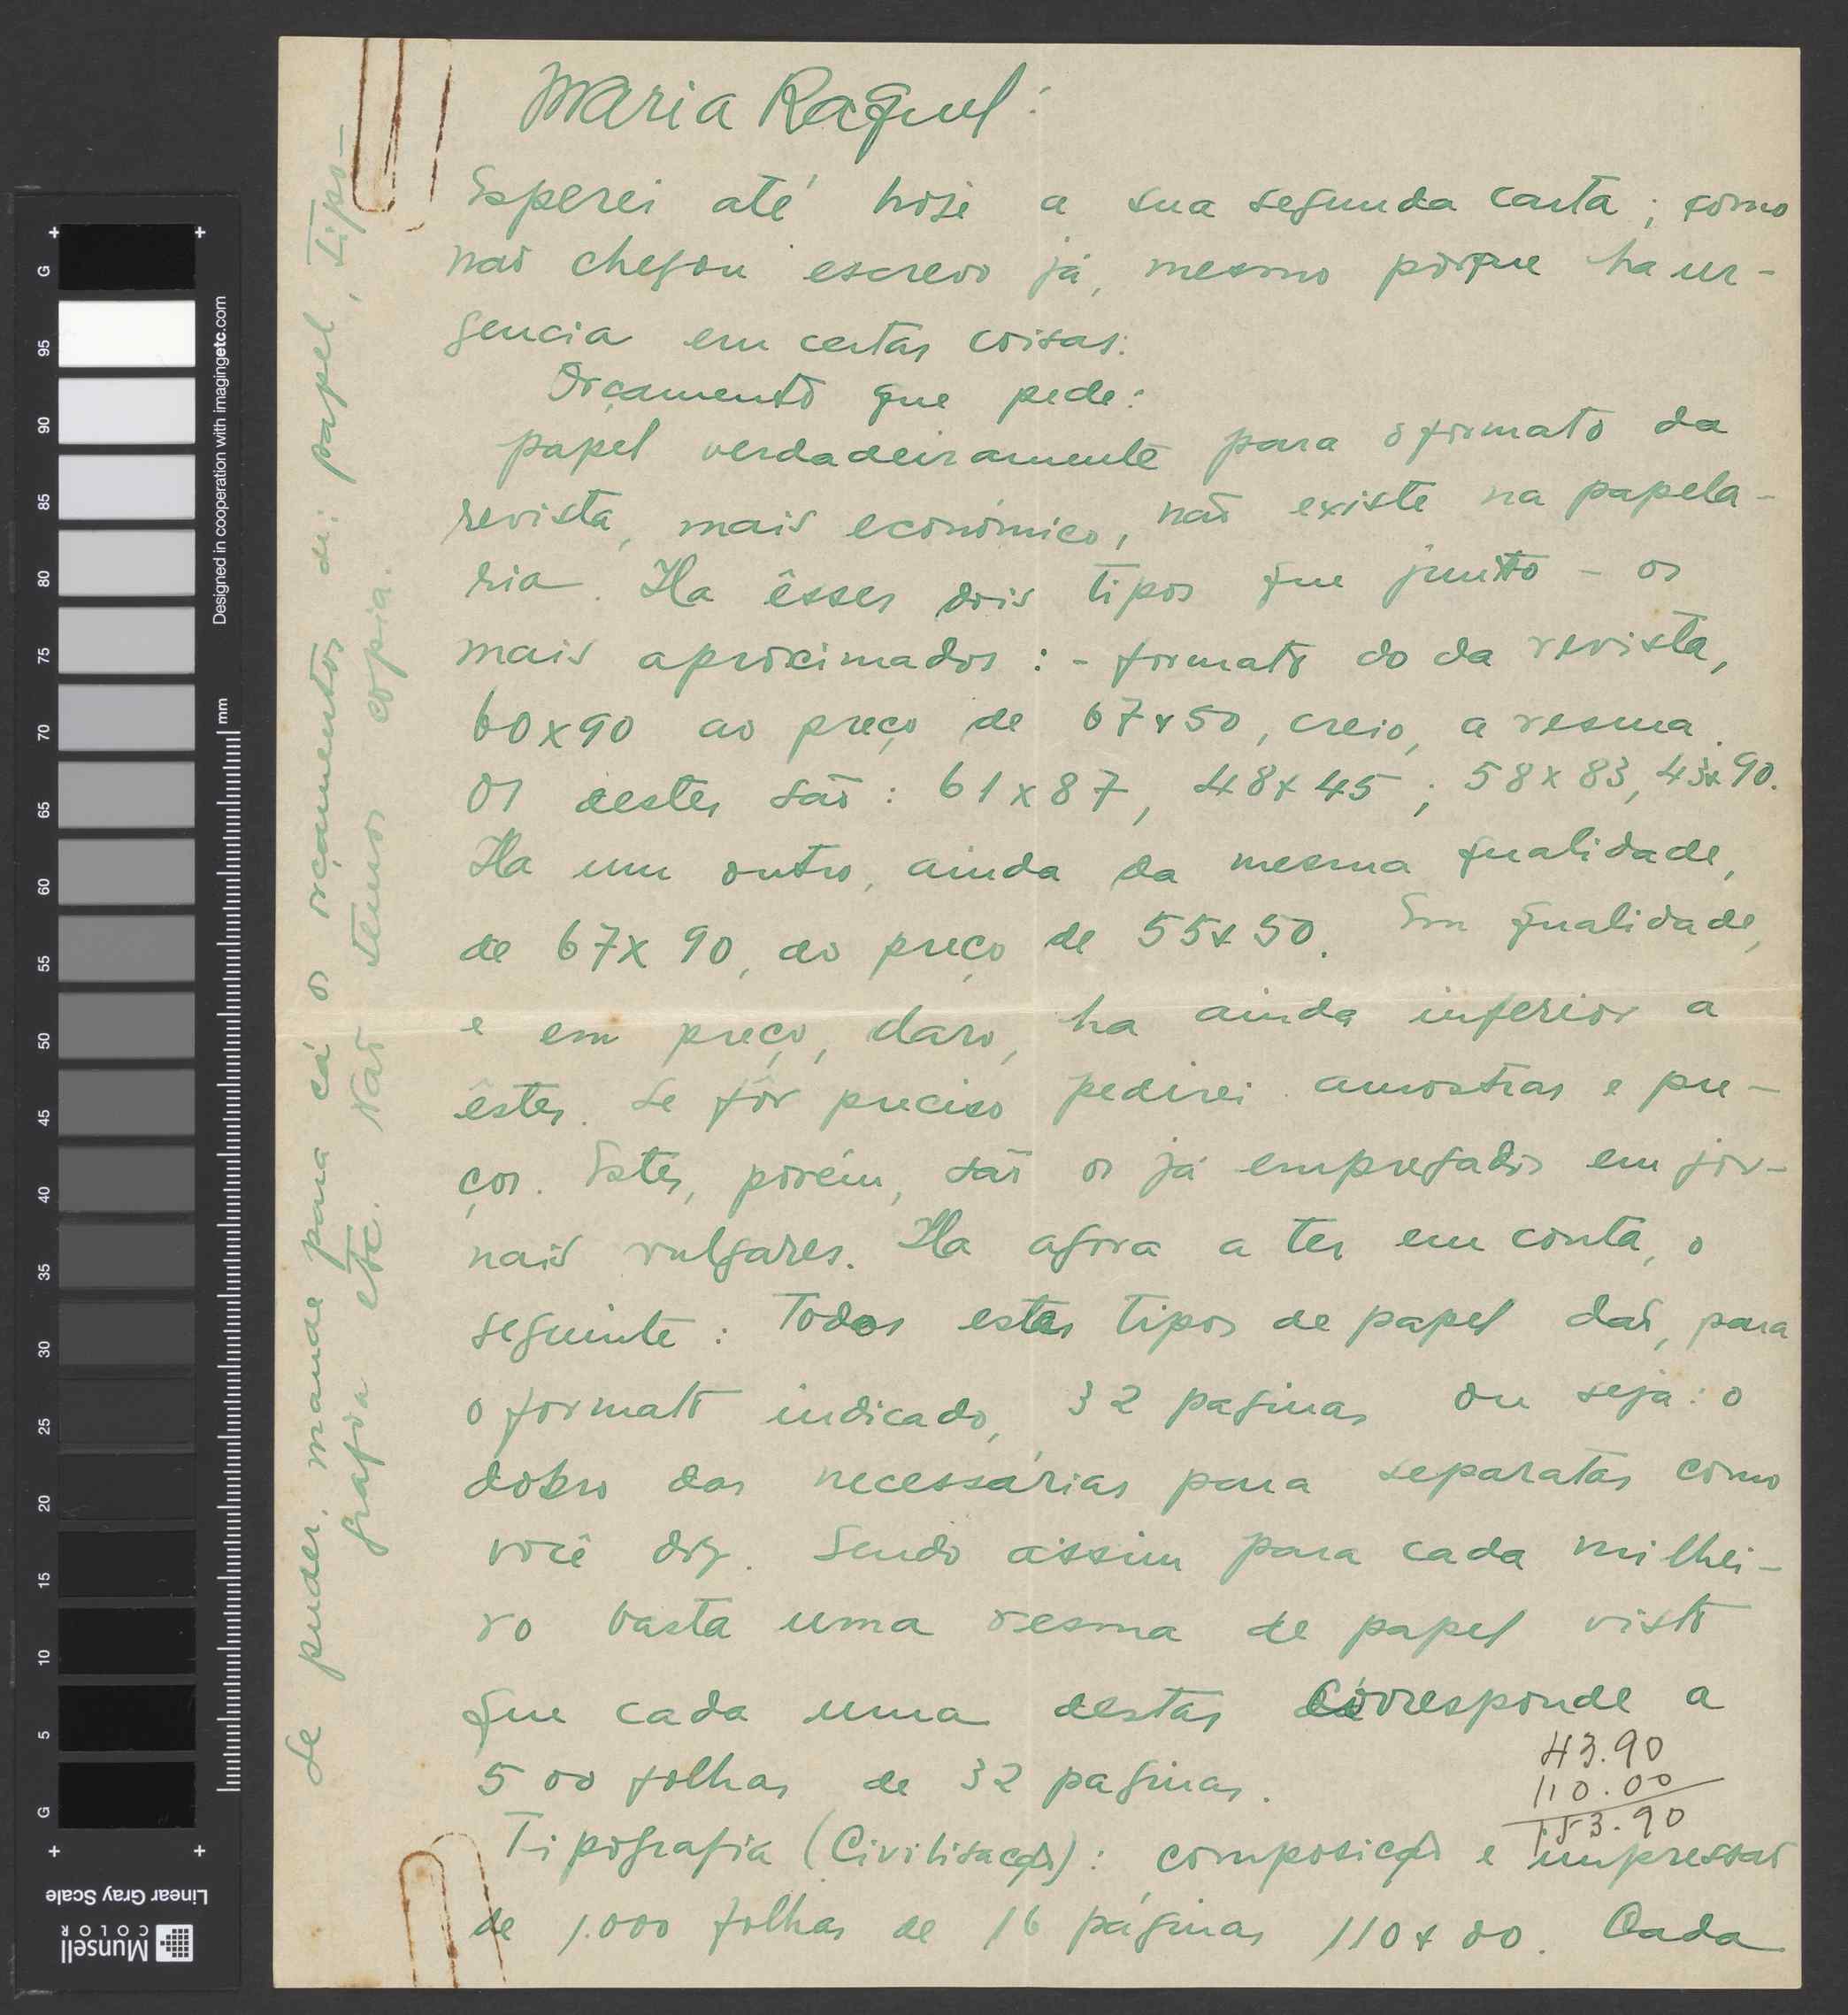 Maria Raquel:
Esperei até hoje a sua segunda carta; como
não chegou escrevo já, mesmo porque ha ur-
gencia em certas coisas.
Orçamento que pede:
papel verdadeiramente para o formato da
revista, mais económico, não existe na papela-
ria. Ha êsses dois tipos que junto - os
mais aproximados: - formato do da revista,
60x90 ao preço de 67$50, creio, a resma.
Os destes são: 61x87, 48$45; 58x83, 43$90.
Ha um outro, ainda da mesma qualidade,
de 67x90, ao preço de 55$50. Em qualidade,
e em preço, claro, ha ainda inferior a
êstes. Se fôr preciso pedirei amostras e pre-
ços. Estes, porém, são os já empregados em jor-
nais vulgares. Ha agora a ter em conta, o
seguinte: Todos estes tipos de papel dão, para
o formato indicado, 32 paginas ou seja: o
dobro das necessárias para separatas como
você diz. Sendo assim para cada milhei-
ro basta uma resma de papel visto
que cada uma destas corresponde a
500 folhas de 32 paginas.
43.90
110.00
153.90
Tipografia (Civilisação): composição e impressão
de 1.000 folhas de 16 páginas 110$00. Cada
Se puder, mande para cá os orçamentos de: papel, tipo-
grafia etc. Não temos copia.
Designed in cooperation with imagingetc.com
mm
G 95 90 85 80 75 70 65 60 55 50 45 40 35 30 25 20 15 10 5 G
Linear Gray Scale
Munsell
COLOR